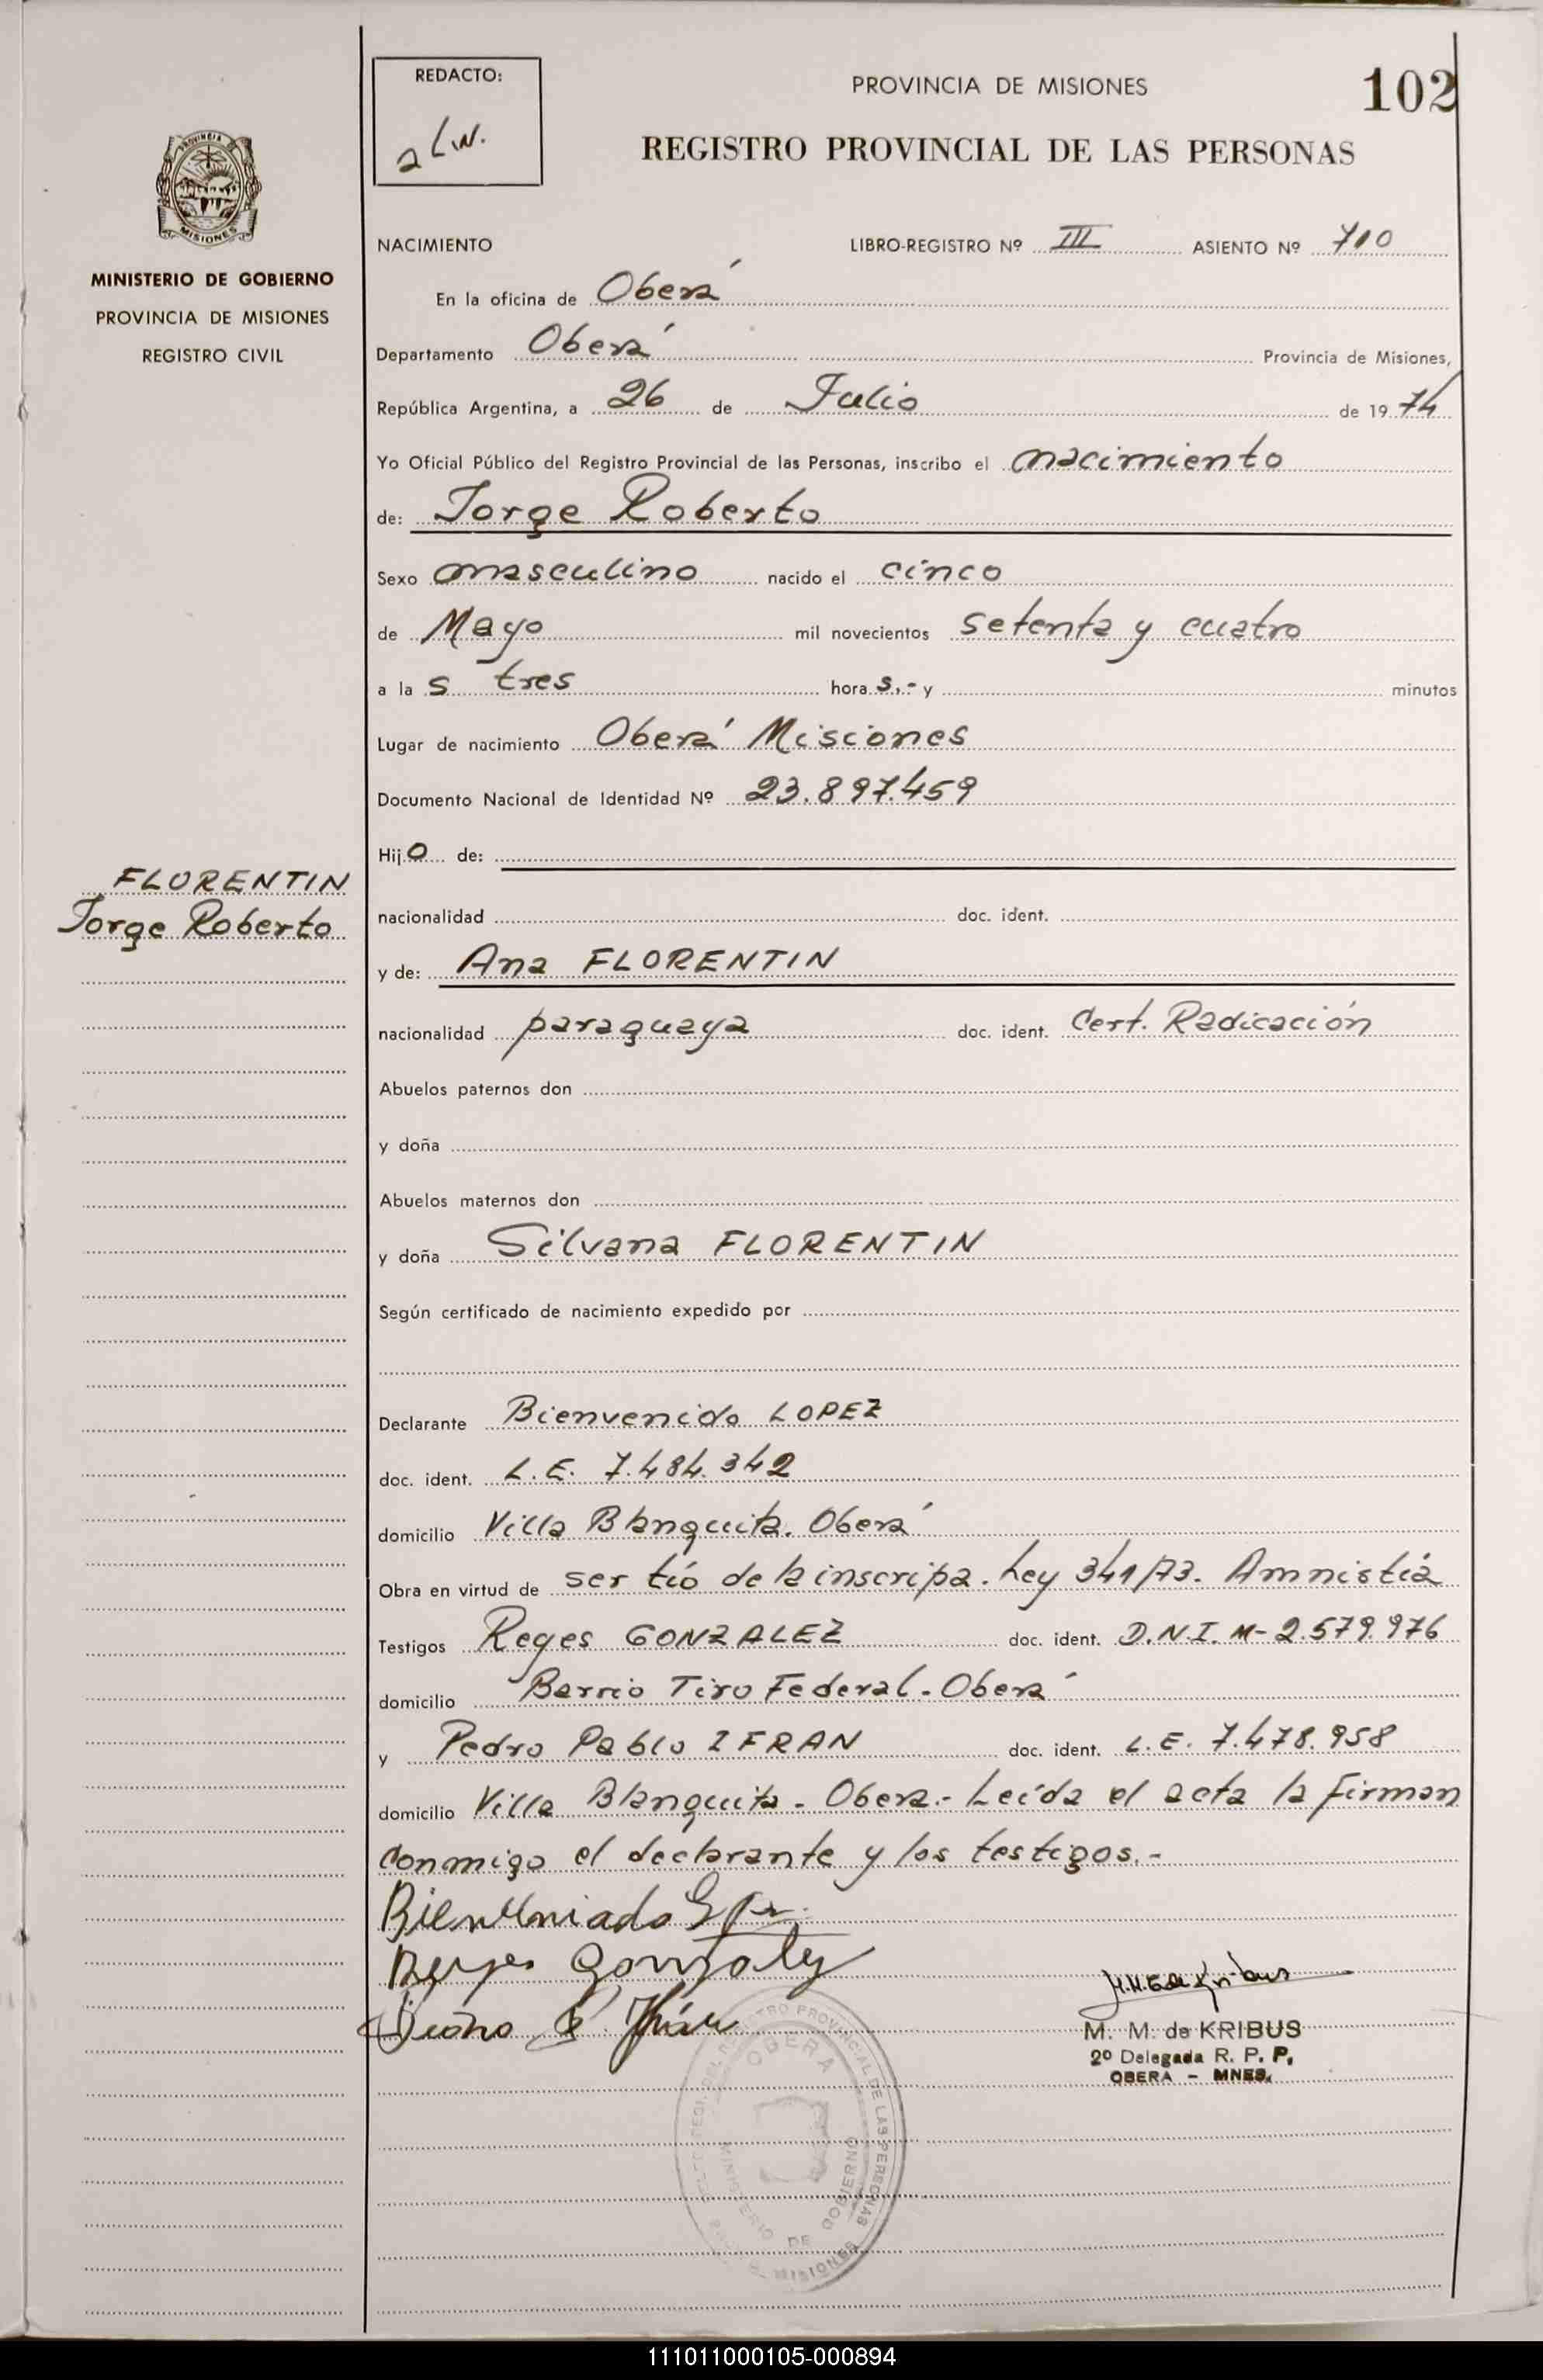 REDACTO:
PROVINCIA DE MISIONES
102
REGISTRO PROVINCIAL DE LAS PERSONAS
PROVINCIA
MISIONES
MINISTERIO DE GOBIERNO
PROVINCIA DE MISIONES
REGISTRO CIVIL
NACIMIENTO LIBRO-REGISTRO Nº III ASIENTO Nº 710
En la oficina de Oberá
Departamento Oberá Provincia de Misiones,
República Argentina, a 26 de Julio de 1974
Yo Oficial Público del Registro Provincial de las Personas, inscribo el nacimiento
de: Jorge Roberto
Sexo masculino nacido el cinco
de Mayo mil novecientos setenta y cuatro
a la s tres hora s.- y minutos
Lugar de nacimiento Oberá Misiones
Documento Nacional de Identidad Nº 23.897.459
Hijo de:
FLORENTIN
Jorge Roberto
nacionalidad doc. ident.
y de: Ana FLORENTIN
nacionalidad paraguaya doc. ident. Cert. Radicación
Abuelos paternos don
y doña
Abuelos maternos don
y doña Silvana FLORENTIN
Según certificado de nacimiento expedido por
Declarante Bienvenido LOPEZ
doc. ident. L.E. 7.484.342
domicilio Villa Blanquita. Oberá
Obra en virtud de ser tío de la inscripa. Ley 341/73. Amnistía
Testigos Reyes GONZALEZ doc. ident. D.N.I. M-2.579.976
domicilio Barrio Tiro Federal - Oberá
y Pedro Pablo IFRAN doc. ident. L.E. 7.478.958
domicilio Villa Blanquita - Obera.- Leída el acta la firman
conmigo el declarante y los testigos.-
Reyes Gonzalez
M. M. de KRIBUS
2º Delegada R. P. P.
OBERA - MNES.
REGISTRO PROVINCIAL DE LAS PERSONAS
OBERA
MINISTERIO DE GOBIERNO
MISIONES
111011000105-000894